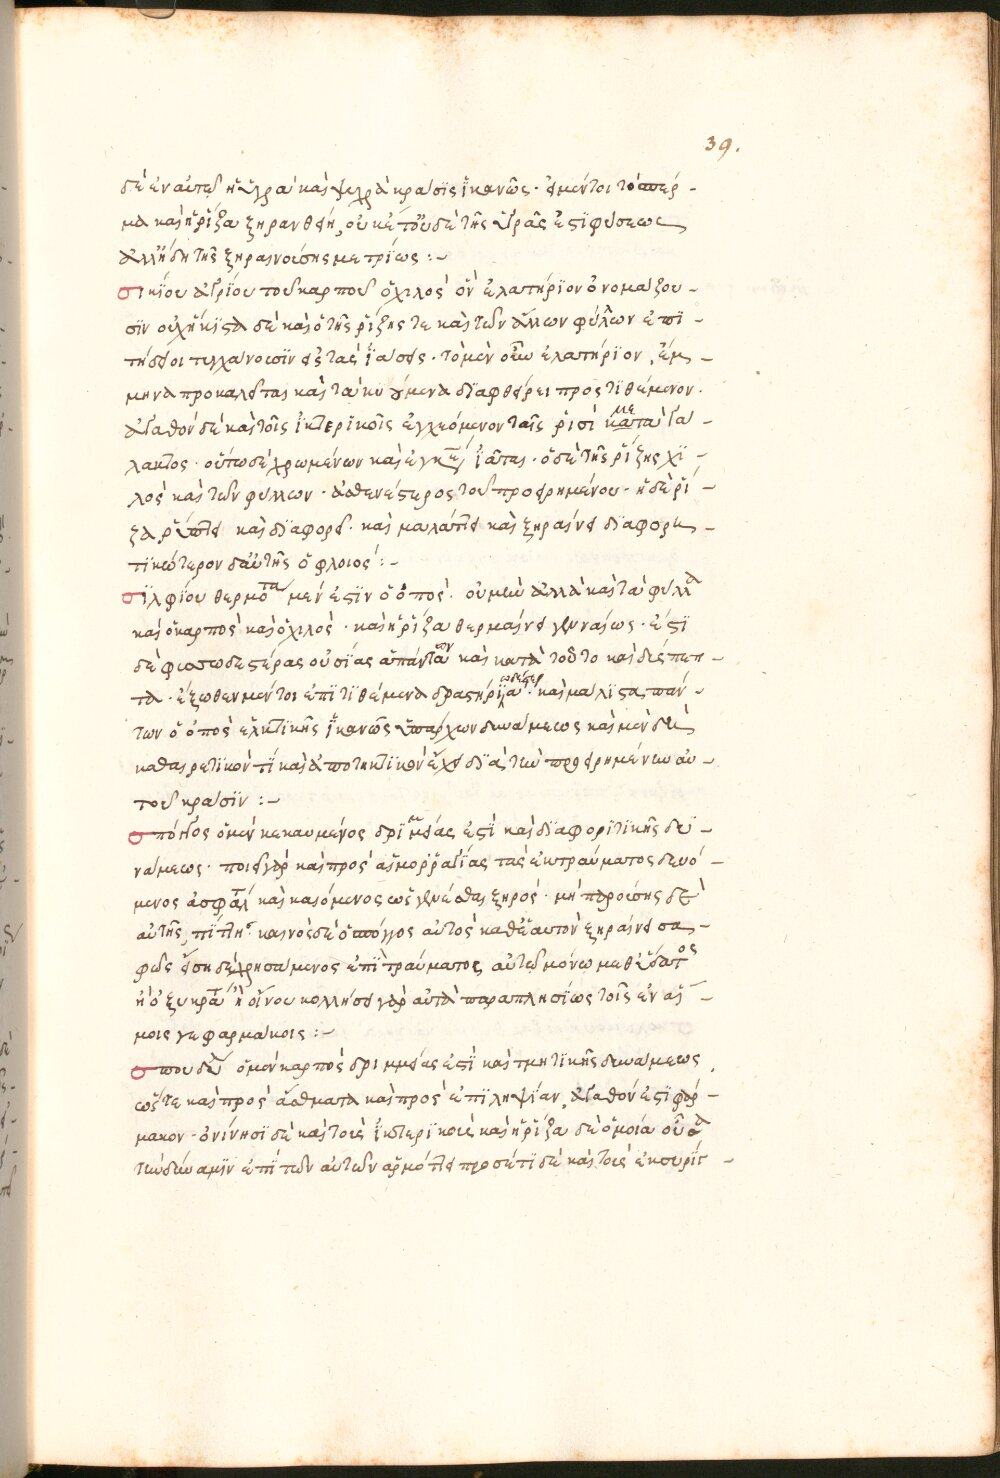 39.
δὲ ἐν αὐτῷ ἡ ὑγρὰ καὶ ψυχρὰ κρᾶσϊς ἱκανῶς · εἰ μέντοι τὸ σπέρ -
μα καὶ ἡ ῥίζα ξηρανθείη, οὐκέτ οὐδὲ τῆς ὑγρᾶς ἐστϊ φύσεως
ἀλλ' ἤδη τῆς ξηραινούσης μετρίως :-
σικύου ἀγρίου τοῦ καρποῦ ὁ χυλὸς ὃν ἐλατήριον ὀνομάζου -
σϊν οὐχ ἥκιστα δὲ καὶ ὁ τῆς ῥίζης τε καὶ τῶν φύλλων ἐπϊ -
τήδειοι τυγχάνουσϊν εἰς τὰς ἰάσεις · τὸ μὲν οὖν ἐλατήριον, ἔμ -
μηνα προκαλεῖται καὶ τὰ κυούμενα δϊαφθείρει προστϊθέμενον ·
ἀγαθὸν δὲ καὶ τοῖς ἰκτερϊκοῖς ἐγχεόμενον ταῖς ῥισὶ μετὰ γά -
λακτος · οὕτω δὲ χρωμένων καὶ ἰᾶται · ὁ δὲ τῆς ῥίζης χυ -
λὸς καὶ τῶν φύλλων · ἀσθενέστερος τοῦ προειρημένου · ἡ δὲ ῥί -
ζα ῥύπτει καὶ δϊαφορεῖ · καὶ μαλάττει καὶ ξηραίνει δϊαφορη -
τϊκώτερον δ' αὐτῆς ὁ φλοιός :-
σϊλφίου θερμότα μέν ἐστϊν ὁ ὀπός · οὐ μὴν ἀλλὰ καὶ τὰ φύλλα
καὶ ὁ καρπὸς καὶ ὁ χυλὸς · καὶ ἡ ῥίζα θερμαίνει γενναίως · ἐστϊ
δὲ φυσωδεστέρας οὐσίας ἅπαντα καὶ κατὰ τοῦτο καὶ δύσπεπ -
τα · ἔξωθεν μέντοι ἐπϊτϊθέμενα δραστήρϊα · καὶ μάλϊστα, πάν -
των ὁ ὀπὸς ἑλκτϊκῆς ἱκανῶς ὑπάρχων δυνάμεως καὶ μὲν δὲ
καθαιρετϊκόν τϊ καὶ ἀποτηκτϊκὸν ἔχει δϊὰ τὴν προειρημένην αὐ -
τοῦ κρᾶσϊν :-
σπόγγος ὁ μὲν κεκαυμένος δρϊμείας ἐστϊ καὶ δϊαφορητϊκῆς δυ -
νάμεως · ποιεῖ γὰρ καὶ πρὸς αἱμορραγίας τὰς ἐκ τραύματος δευό -
μενος ἀσφάλ καὶ καιόμενος ὡς γενέσθαι ξηρός · μὴ παρούσης δὲ
αὐτῆς, πίττης · καινὸς δὲ ὁ σπόγγος αὐτὸς καθ' ἑαυτὸν ξηραίνει σα -
φῶς εἴσῃ δὲ χρησάμενος ἐπϊ τραύματος αὐτῷ μόνῳ μεθ' ὕδατος
ἢ ὀξυκράτ ἢ οἴνου κολλήσει γὰρ αὐτὰ παραπλησίως τοῖς ἐναί -
μοις γε φαρμάκοις :-
σπονδύ ὁ μὲν καρπὸς δριμμείας ἐστϊ καὶ τμητϊκῆς δυνάμεως
ὥστε καὶ πρὸς ἄσθματα καὶ πρὸς ἐπϊληψίαν, ἀγαθόν ἐστϊ φάρ -
μακον · ὀνίνησϊ δὲ καὶ τοὺς ἰκτερϊκοὺς καὶ ἡ ῥίζα δὲ ὁμοία οὖσα
τὴν δύναμϊν ἐπϊ τῶν αὐτῶν ἁρμόττει προσέτϊ δὲ καὶ τοὺς ἐν συρίγ -